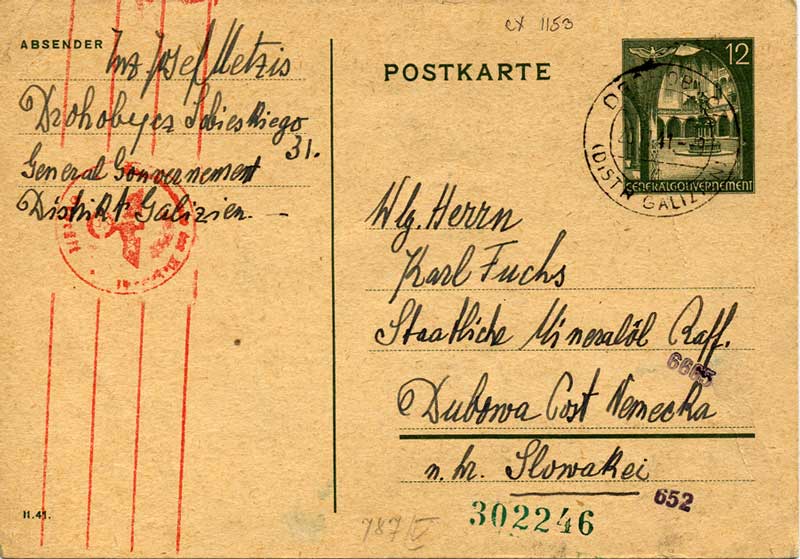 cx 1153
ABSENDER Inz. Josef Metzis
Drohobycz Sobieskiego
31.
General Gouvernement
Distrikt Galizien.
POSTKARTE
12
GENERALGOUVERNEMENT
(DISTR. GALIZIEN)
Wlg. Herrn
Karl Fuchs
Staatliche Mineralöl Raff.
6663
Dubowa Cost Nemecka
n. hr. Slowakei
652
302246
787/
II.41.